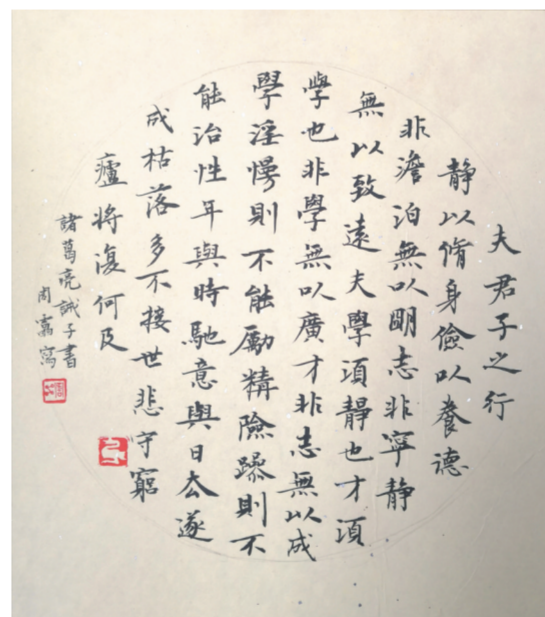 夫君子之行
静以脩身儉以養德
非澹泊無以明志非寧静
無以致遠夫學湏静也才湏
學也非學無以廣才非志無以成
學淫慢則不能勵精險躁則不
能治性年與時馳意與日去遂
成枯落多不接世悲守窮
廬將復何及
諸葛亮誡子書
周